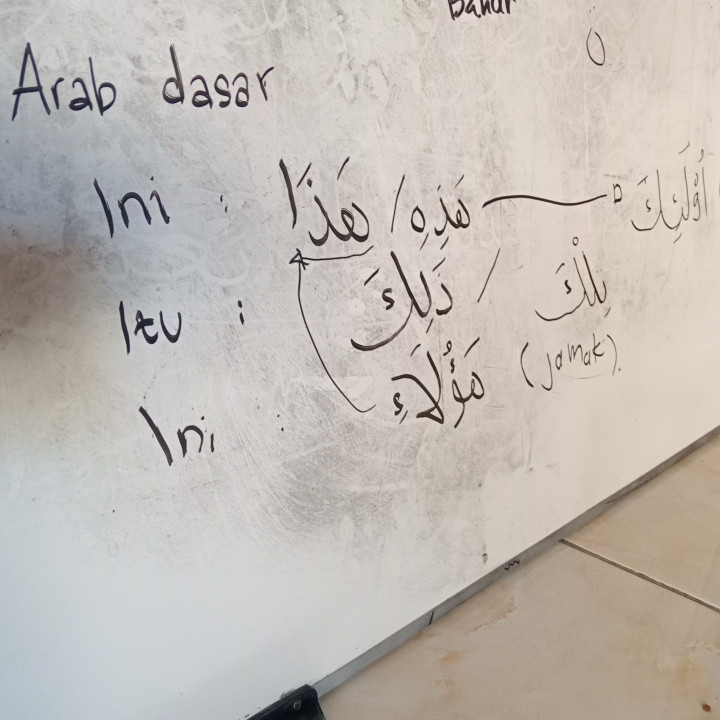 Bahdr
Arab dasar
Ini : هَذَا / هَذِهِ أُوْلَئِكَ
Itu : ذَلِكَ / تِلْكَ
Ini : هَؤُلَاءِ (jamak).